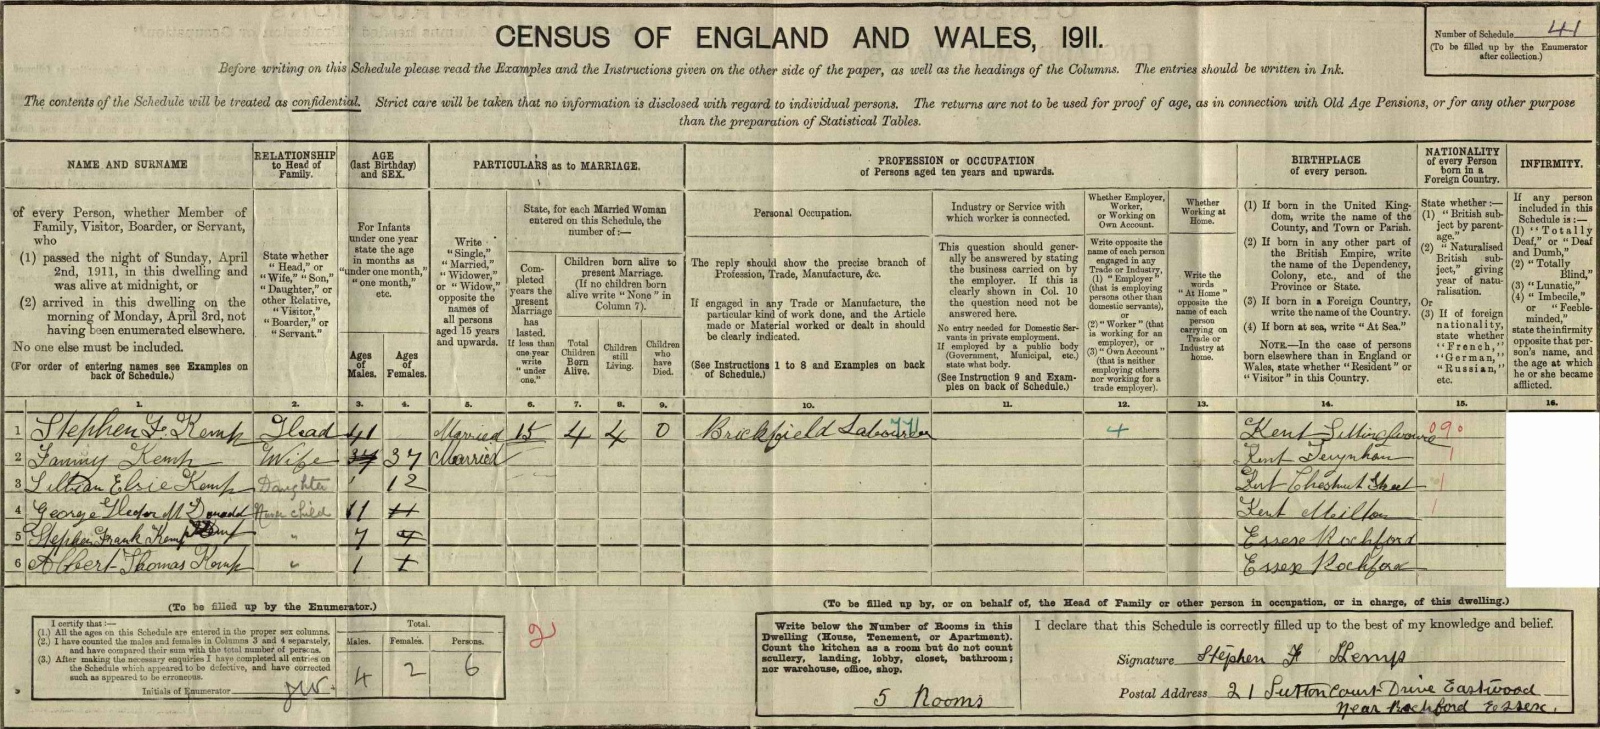 CENSUS OF ENGLAND AND WALES, 1911.
Number of Schedule 41
(To be filled up by the Enumerator
after collection.)
Before writing on this Schedule please read the Examples and the Instructions given on the other side of the paper, as well as the headings of the Columns. The entries should be written in Ink.
The contents of the Schedule will be treated as confidential. Strict care will be taken that no information is disclosed with regard to individual persons. The returns are not to be used for proof of age, as in connection with Old Age Pensions, or for any other purpose
than the preparation of Statistical Tables.
NAME AND SURNAME
of every Person, whether Member of
Family, Visitor, Boarder, or Servant,
who
(1) passed the night of Sunday, April
2nd, 1911, in this dwelling and
was alive at midnight, or
(2) arrived in this dwelling on the
morning of Monday, April 3rd, not
having been enumerated elsewhere.
No one else must be included.
(For order of entering names see Examples on
back of Schedule.)
RELATIONSHIP
to Head of
Family.
State whether
"Head," or
"Wife," "Son,"
"Daughter," or
other Relative,
"Visitor,"
"Boarder," or
"Servant."
AGE
(last Birthday)
and SEX.
For Infants
under one year
state the age
in months as
"under one month,"
"one month,"
etc.
Ages
of
Males.
Ages
of
Females.
PARTICULARS as to MARRIAGE.
Write
"Single,"
"Married,"
"Widower,"
or "Widow,"
opposite the
names of
all persons
aged 15 years
and upwards.
State, for each Married Woman
entered on this Schedule, the
number of:—
Com-
pleted
years the
present
Marriage
has
lasted.
If less than
one year
write
"under
one."
Children born alive to
present Marriage.
(If no children born
alive write "None" in
Column 7).
Total
Children
Born
Alive.
Children
still
Living.
Children
who
have
Died.
PROFESSION or OCCUPATION
of Persons aged ten years and upwards.
Personal Occupation.
The reply should show the precise branch of
Profession, Trade, Manufacture, &c.
If engaged in any Trade or Manufacture, the
particular kind of work done, and the Article
made or Material worked or dealt in should
be clearly indicated.
(See Instructions 1 to 8 and Examples on back
of Schedule.)
Industry or Service with
which worker is connected.
This question should gener-
ally be answered by stating
the business carried on by
the employer. If this is
clearly shown in Col. 10
the question need not be
answered here.
No entry needed for Domestic Ser-
vants in private employment.
If employed by a public body
(Government, Municipal, etc.)
state what body.
(See Instruction 9 and Exam-
ples on back of Schedule.)
Whether Employer,
Worker,
or Working on
Own Account.
Write opposite the
name of each person
engaged in any
Trade or Industry,
(1) "Employer"
(that is employing
persons other than
domestic servants),
or
(2) "Worker" (that
is working for an
employer), or
(3) "Own Account"
(that is neither
employing others
nor working for a
trade employer).
Whether
Working at
Home.
Write the
words
"At Home"
opposite the
name of each
person
carrying on
Trade or
Industry at
home.
BIRTHPLACE
of every person.
(1) If born in the United King-
dom, write the name of the
County, and Town or Parish.
(2) If born in any other part of
the British Empire, write
the name of the Dependency,
Colony, etc., and of the
Province or State.
(3) If born in a Foreign Country,
write the name of the Country.
(4) If born at sea, write "At Sea."
NOTE.—In the case of persons
born elsewhere than in England or
Wales, state whether "Resident" or
"Visitor" in this Country.
NATIONALITY
of every Person
born in a
Foreign Country.
State whether:—
(1) "British sub-
ject by parent-
age."
(2) "Naturalised
British sub-
ject," giving
year of natu-
ralisation.
Or
(3) If of foreign
nationality,
state whether
"French,"
"German,"
"Russian,"
etc.
INFIRMITY.
If any person
included in this
Schedule is:—
(1) "Totally
Deaf," or "Deaf
and Dumb,"
(2) "Totally
Blind,"
(3) "Lunatic,"
(4) "Imbecile,"
or "Feeble-
minded,"
state the infirmity
opposite that per-
son's name, and
the age at which
he or she became
afflicted.
1. 2. 3. 4. 5. 6. 7. 8. 9. 10. 11. 12. 13. 14. 15. 16.
1 Stephen F. Kemp Head 41 Married 15 4 4 0 Brickfield Labourer 4 Kent Sittingbourne 090
2 Fanny Kemp Wife 37 37 Married Kent Teynham
3 Lillian Elsie Kemp Daughter 12 Kent Chesnut Street
4 George Hector Mc Donald Nurse child 11 Kent Milton
5 Stephen Frank Kemp " 7 7 Essex Rochford
6 Albert Thomas Kemp " 1 1 Essex Rochford
(To be filled up by the Enumerator.)
I certify that:—
(1.) All the ages on this Schedule are entered in the proper sex columns.
(2.) I have counted the males and females in Columns 3 and 4 separately,
and have compared their sum with the total number of persons.
(3.) After making the necessary enquiries I have completed all entries on
the Schedule which appeared to be defective, and have corrected
such as appeared to be erroneous.
Initials of Enumerator
Total.
Males. Females. Persons.
4 2 6
2
(To be filled up by, or on behalf of, the Head of Family or other person in occupation, or in charge, of this dwelling.)
Write below the Number of Rooms in this
Dwelling (House, Tenement, or Apartment).
Count the kitchen as a room but do not count
scullery, landing, lobby, closet, bathroom;
nor warehouse, office, shop.
5 Rooms
I declare that this Schedule is correctly filled up to the best of my knowledge and belief.
Signature Stephen F Kemp
Postal Address 21 Sutton Court Drive Eastwood
Near Rochford Essex.